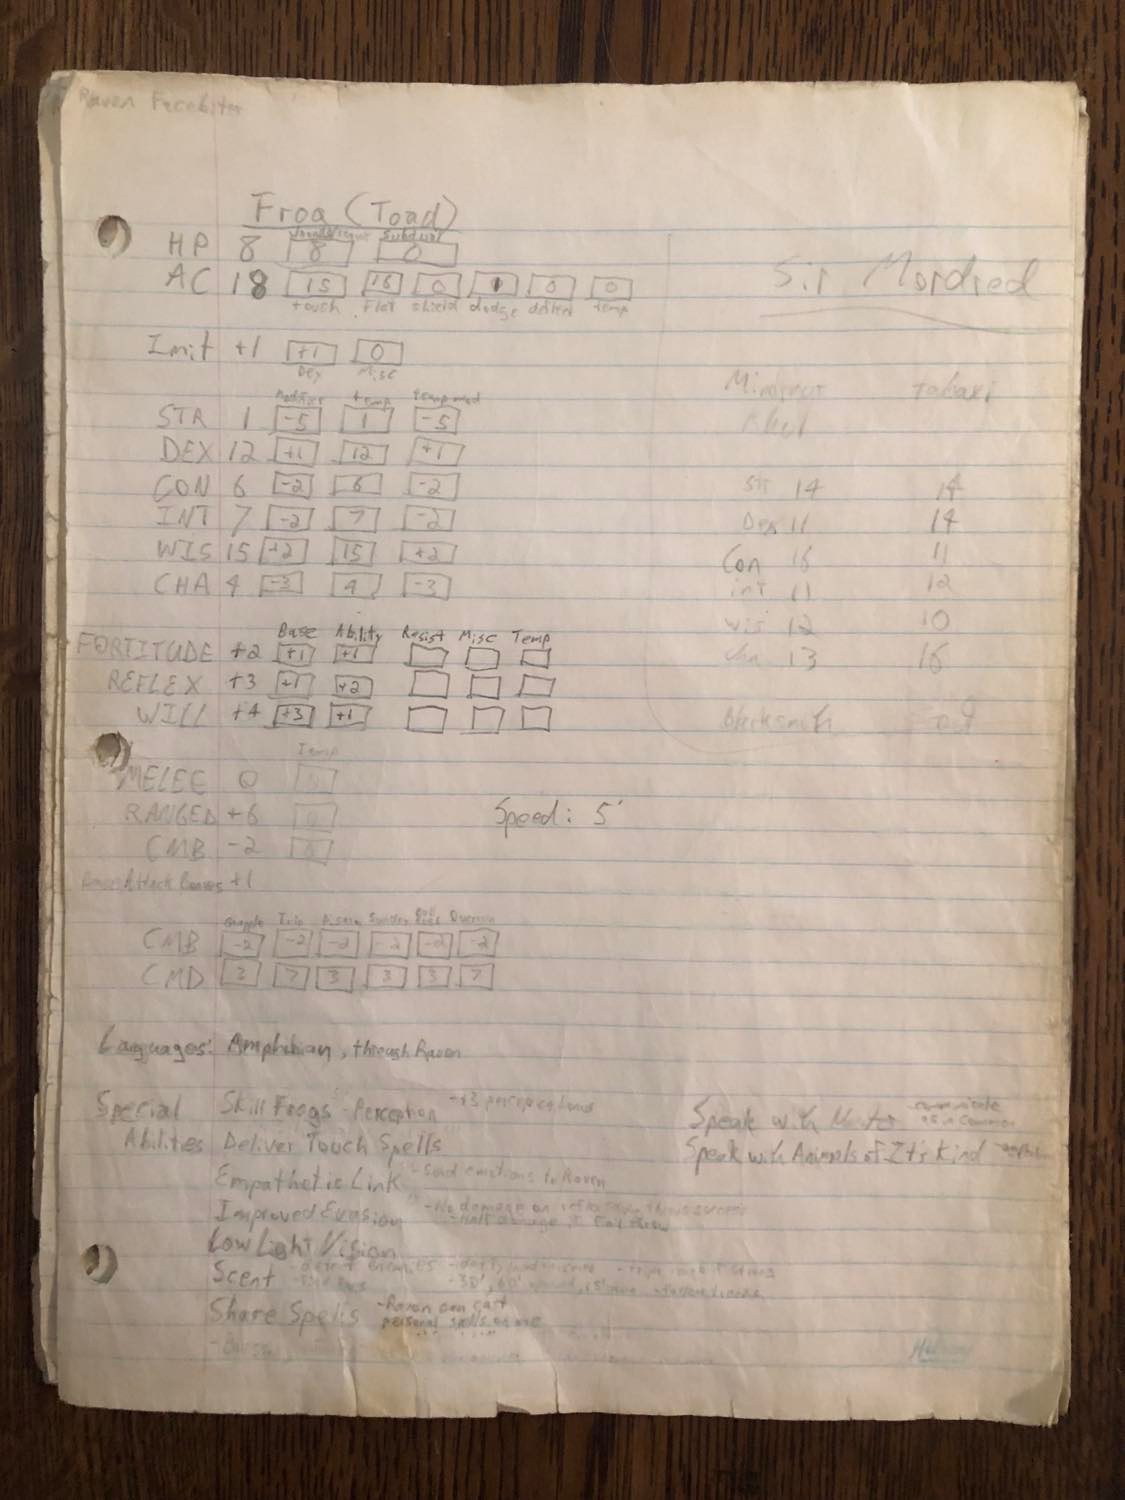 Raven
Frog (Toad)
HP 8 8 0
Subdual
AC 18 15 16 0 1 0 0
touch Flat shield dodge deflect temp
Sir Mordred
Init +1 +1 0
Dex Misc
Modifier temp temp mod
STR 1 -5 1 -5
DEX 12 +1 12 +1
CON 6 -2 6 -2
INT 7 -2 7 -2
WIS 15 +2 15 +2
CHA 4 -3 4 -3
Str 14 14
Dex 11 14
Con 16 11
int 11 12
wis 12 10
cha 13 16
Blacksmith
Base Ability Resist Misc Temp
FORTITUDE +2 +1 +1
REFLEX +3 +1 +2
WILL +4 +3 +1
Temp
MELEE 0 0
RANGED +6 0
CMB -2 0
Speed: 5'
Attack Bonus +1
Grapple Trip Disarm Sunder Bull Rush Overrun
CMB -2 -2 -2 -2 -2 -2
CMD 3 7 3 3 3 7
Languages: Amphibian, through Raven
Special Skill Frogs - Perception - +3 perception bonus
Abilities Deliver Touch Spells
Empathetic Link - Send emotions to Raven
Improved Evasion - No damage on reflex save throw success
- Half damage if fail throw
Low Light Vision
Scent - detect enemies
Share Spells - Raven can cast
personal spells on me
Speak with Master - communicate
as in Common
Speak with Animals of It's Kind